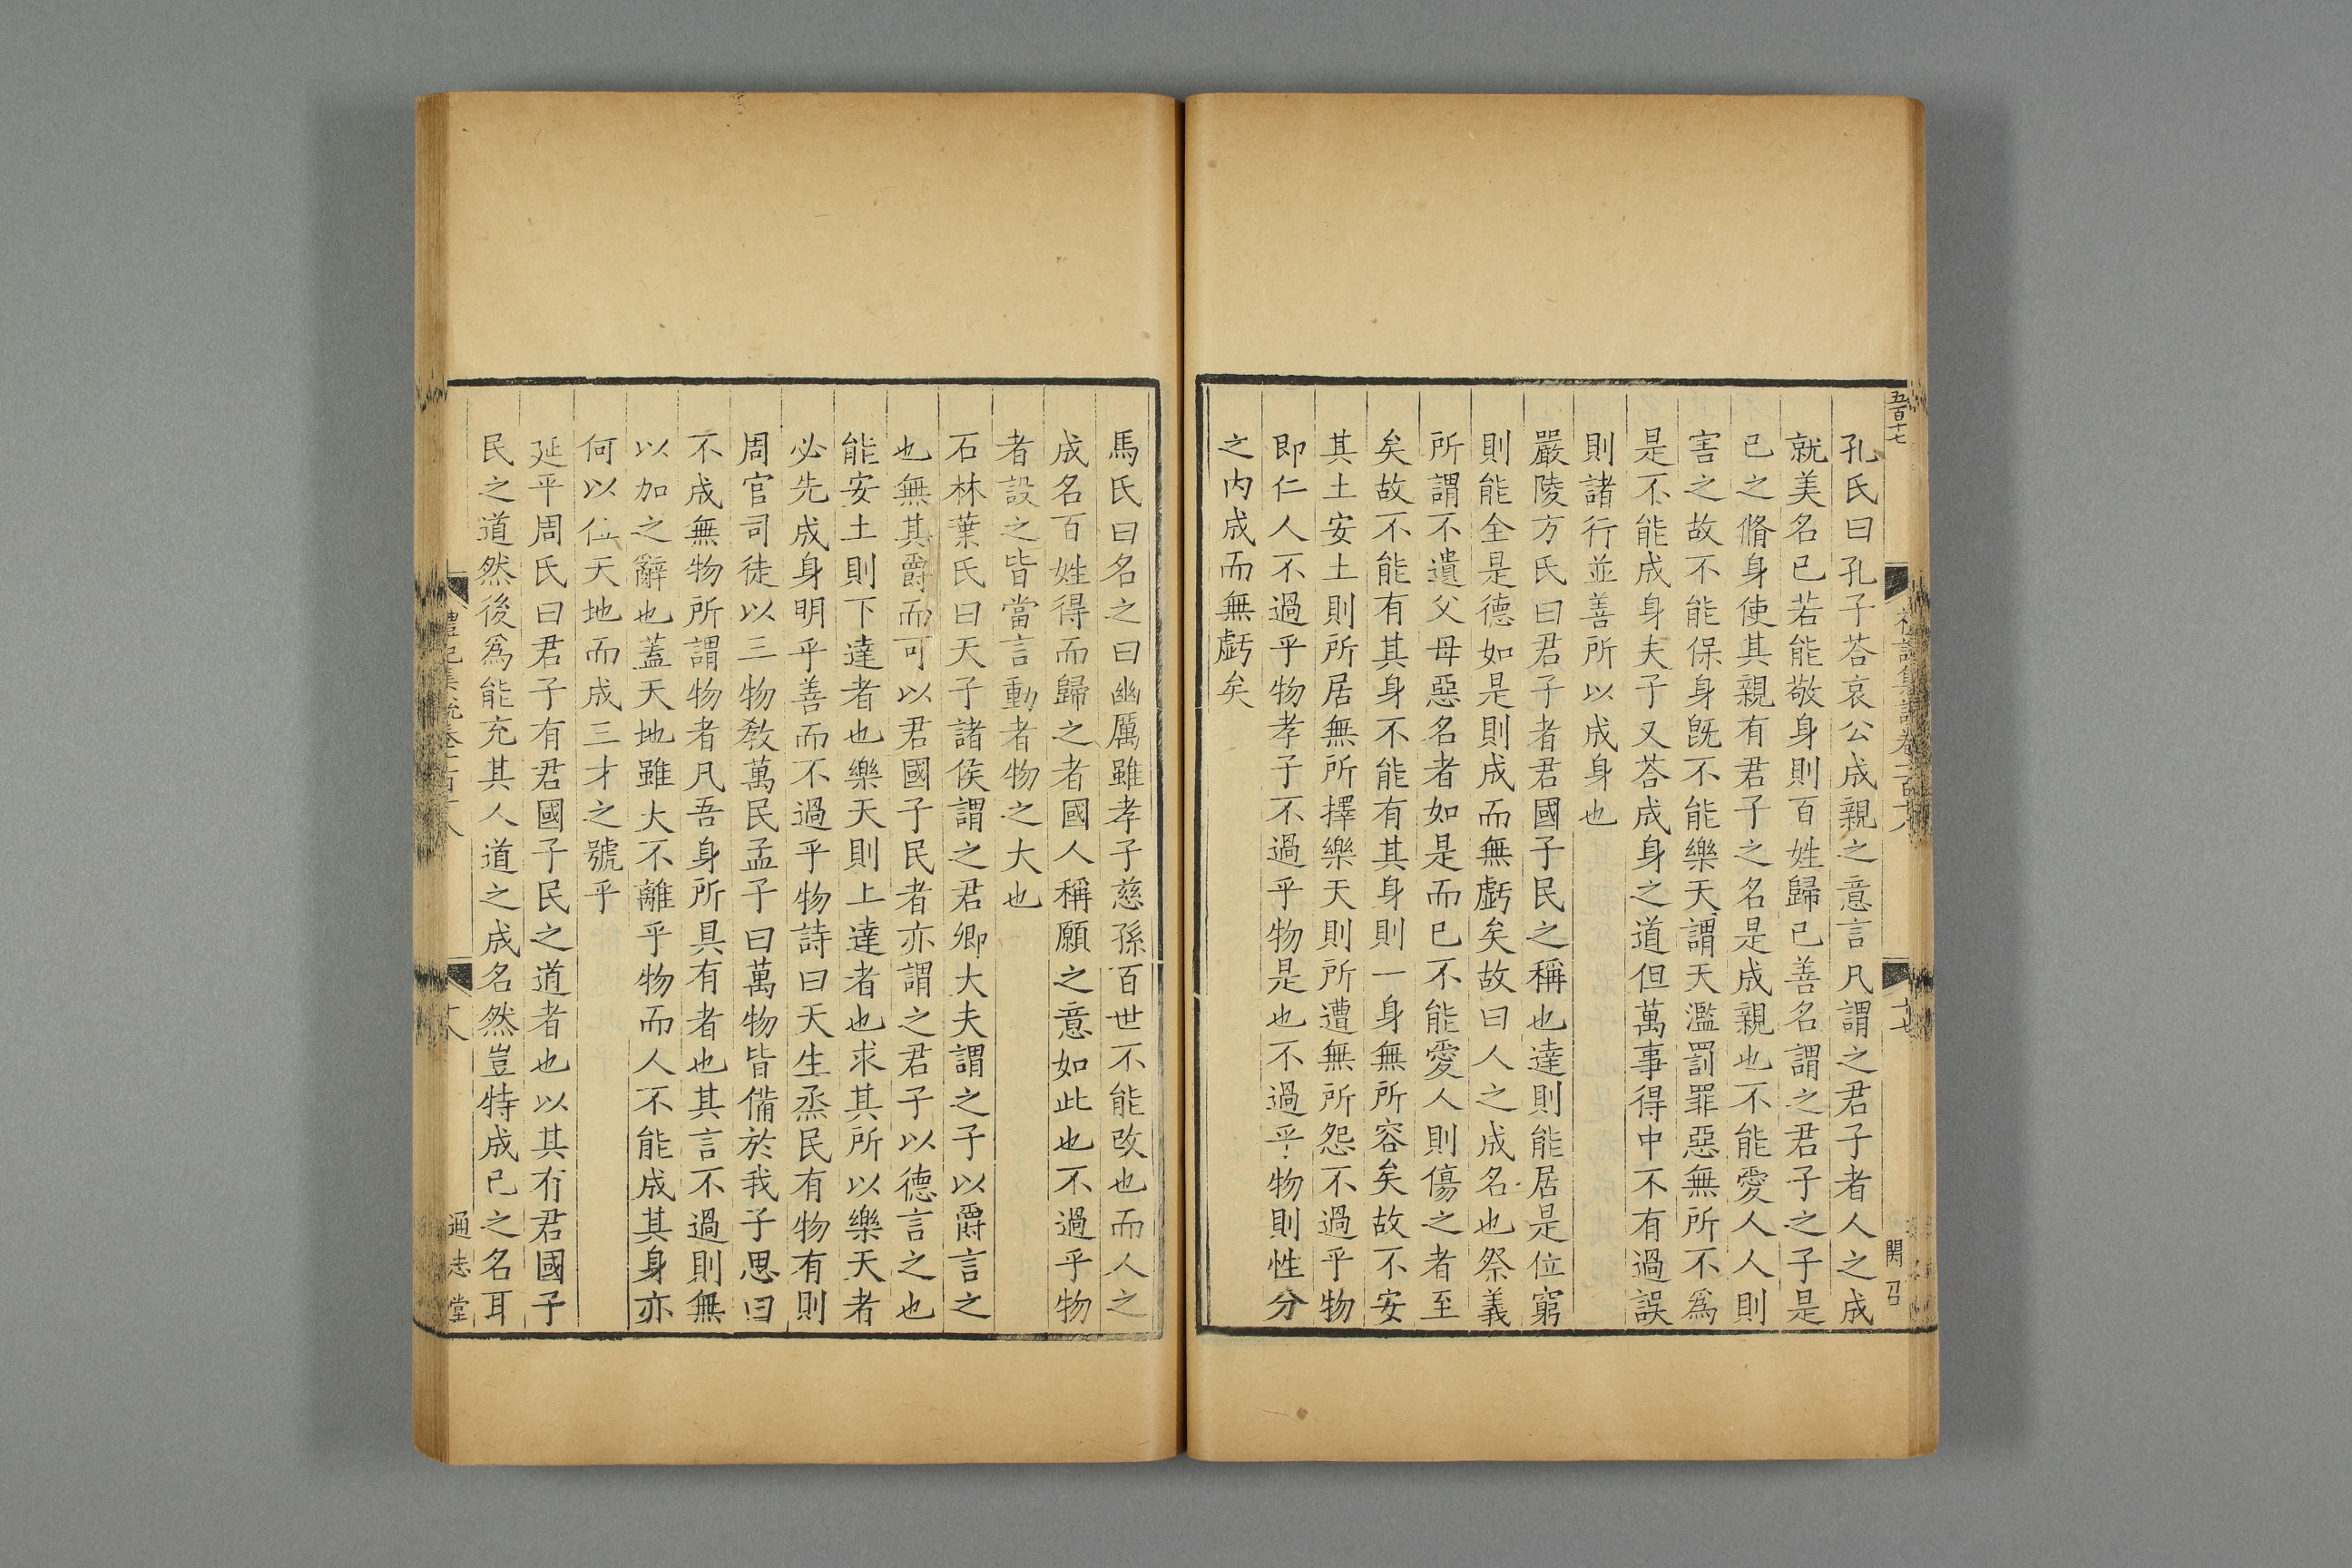 五百十七
孔氏曰孔子荅哀公成親之意言凡謂之君子者人之成
就美名已若能敬身則百姓歸己善名謂之君子之子是
已之脩身使其親有君子之名是成親也不能愛人人則
害之故不能保身旣不能樂天謂天濫罰罪惡無所不爲
是不能成身夫子又荅成身之道但萬事得中不有過誤
則諸行並善所以成身也
嚴陵方氏曰君子者君國子民之稱也達則能居是位窮
則能全是德如是則成而無虧矣故曰人之成名也祭義
所謂不遺父母惡名者如是而已不能愛人則傷之者至
矣故不能有其身不能有其身則一身無所容矣故不安
其土安土則所居無所擇樂天則所遭無所怨不過乎物
即仁人不過乎物孝子不過乎物是也不過乎物則性分
之内成而無虧矣
馬氏曰名之曰幽厲雖孝子慈孫百世不能改也而人之
成名百姓得而歸之者國人稱願之意如此也不過乎物
者設之皆當言動者物之大也
石林葉氏曰天子諸侯謂之君卿大夫謂之子以爵言之
也無其爵而可以君國子民者亦謂之君子以德言之也
能安土則下達者也樂天則上達者也求其所以樂天者
必先成身明乎善而不過乎物詩曰天生烝民有物有則
周官司徒以三物敎萬民孟子曰萬物皆備於我子思曰
不成無物所謂物者凡吾身所具有者也其言不過則無
以加之辭也蓋天地雖大不離乎物而人不能成其身亦
何以位天地而成三才之號乎
延平周氏曰君子有君國子民之道者也以其有君國子
民之道然後爲能充其人道之成名然豈特成已之名耳
通志堂